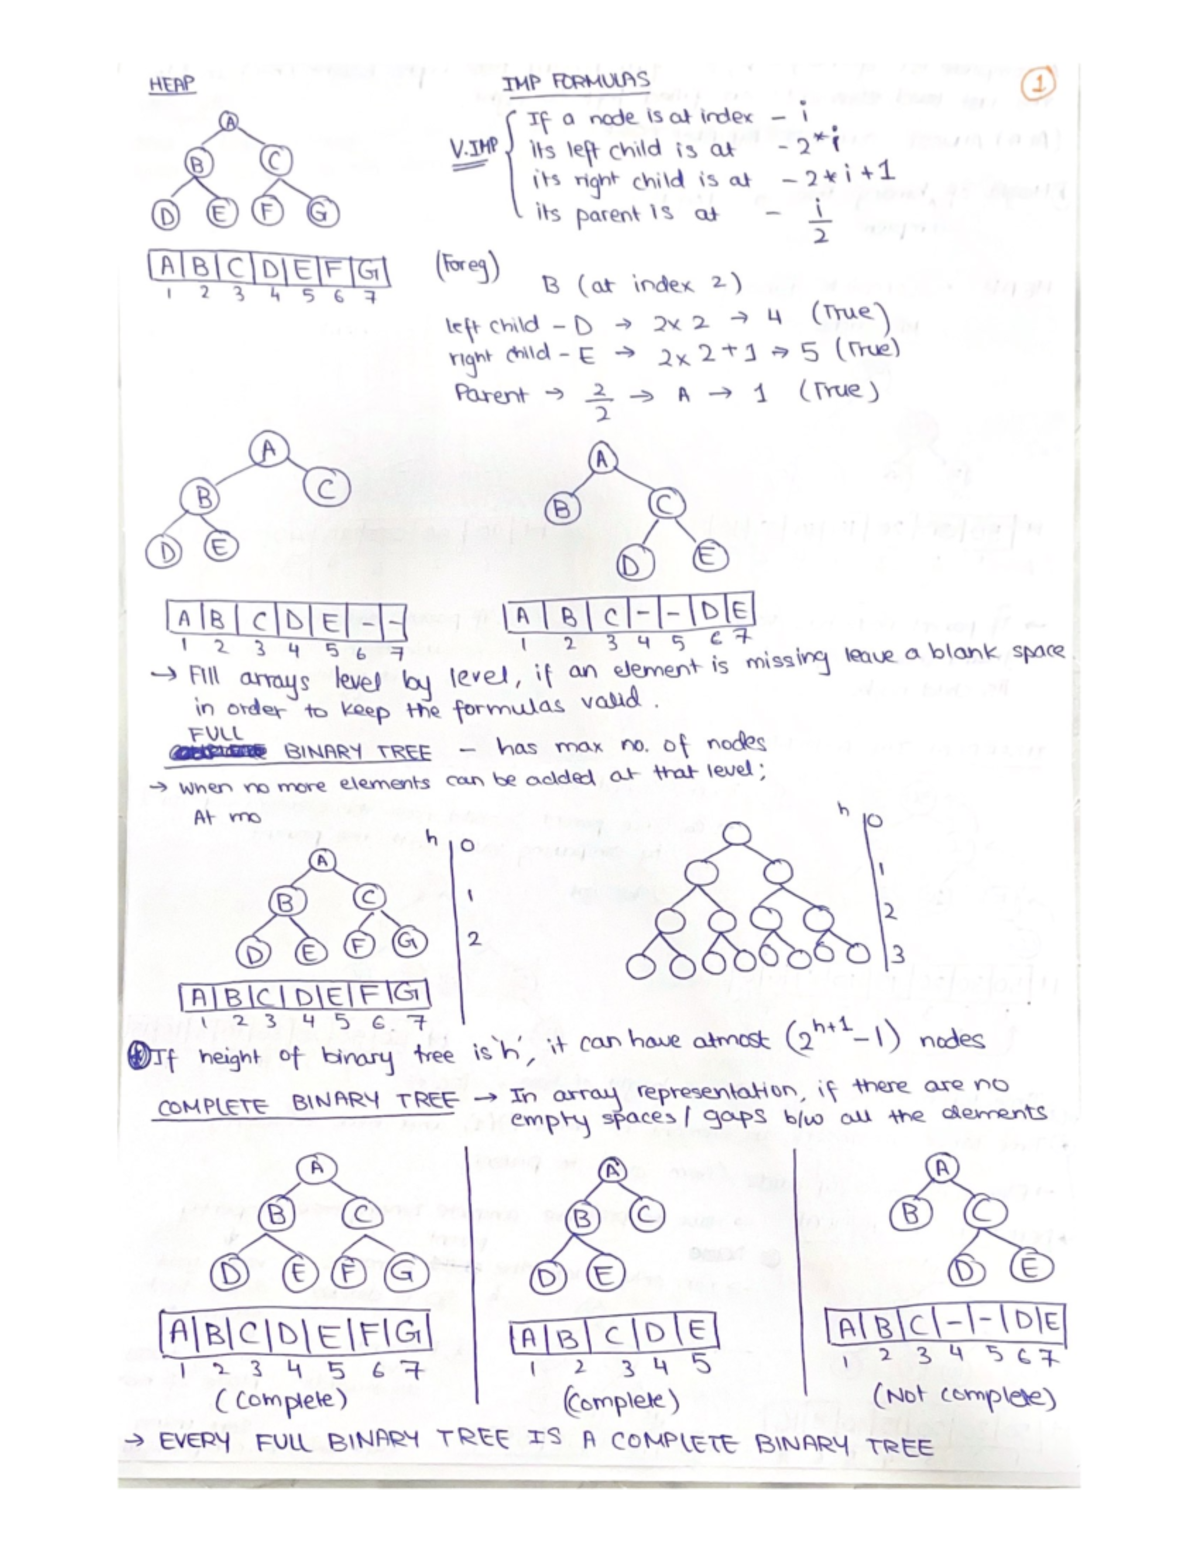 HEAP
IMP FORMULAS
1
A
B C
D E F G
A B C D E F G
1 2 3 4 5 6 7
V.IMP
If a node is at index - i
its left child is at - 2*i
its right child is at - 2*i+1
its parent is at - i/2
(For eg)
B (at index 2)
left child - D → 2x2 → 4 (True)
right child - E → 2x2+1 → 5 (True)
Parent → 2/2 → A → 1 (True)
A
B C
D E
A B C D E - -
1 2 3 4 5 6 7
A
B C
D E
A B C - - D E
1 2 3 4 5 6 7
→ Fill arrays level by level, if an element is missing leave a blank space
in order to keep the formulas valid.
FULL
BINARY TREE - has max no. of nodes
→ When no more elements can be added at that level;
At mo
A
B C
D E F G
h 0
1
2
A B C D E F G
1 2 3 4 5 6 7
h 0
1
2
3
If height of binary tree is 'h', it can have atmost (2^h+1 - 1) nodes
COMPLETE BINARY TREE → In array representation, if there are no
empty spaces / gaps b/w all the elements
A
B C
D E F G
A B C D E F G
1 2 3 4 5 6 7
(Complete)
A
B C
D E
A B C D E
1 2 3 4 5
(Complete)
A
B C
D E
A B C - - D E
1 2 3 4 5 6 7
(Not complete)
→ EVERY FULL BINARY TREE IS A COMPLETE BINARY TREE